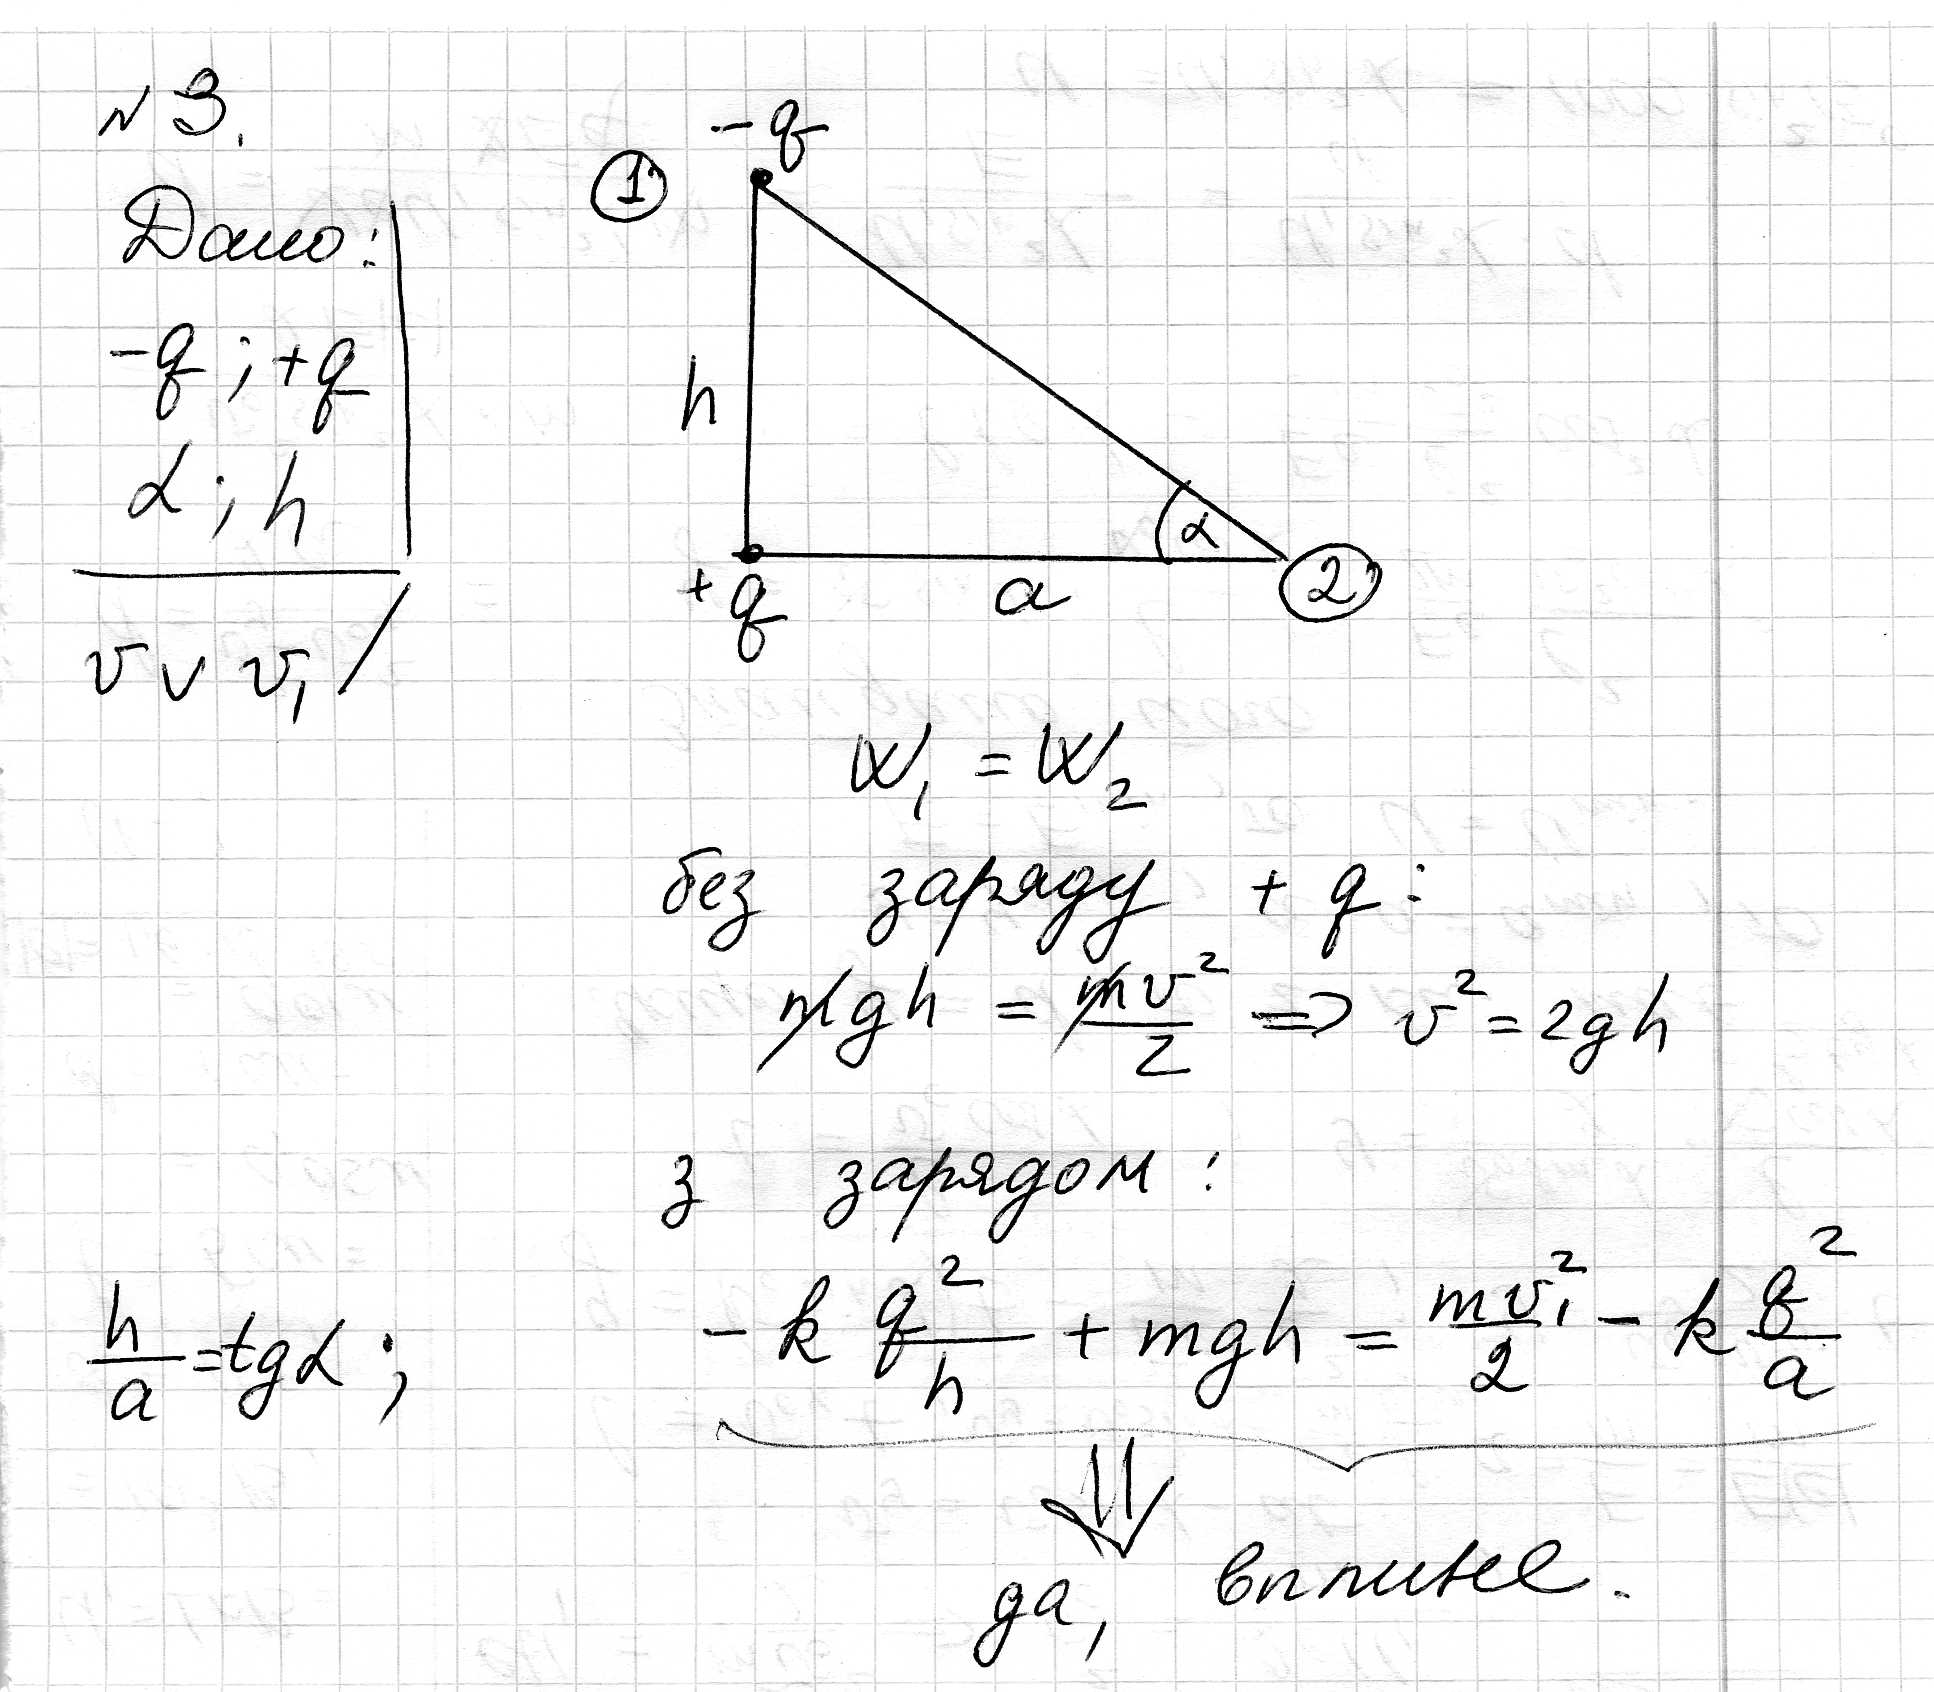 №3.
Дано:
-q; +q
α; h
v ∨ v₁
① -q
h
α
+q a ②
W₁ = W₂
без заряду + q:
mgh = mv²/2 => v² = 2gh
з зарядом:
h/a = tgα;
-k q²/h + mgh = mv₁²/2 - k q²/a
⇓
да, вплине.